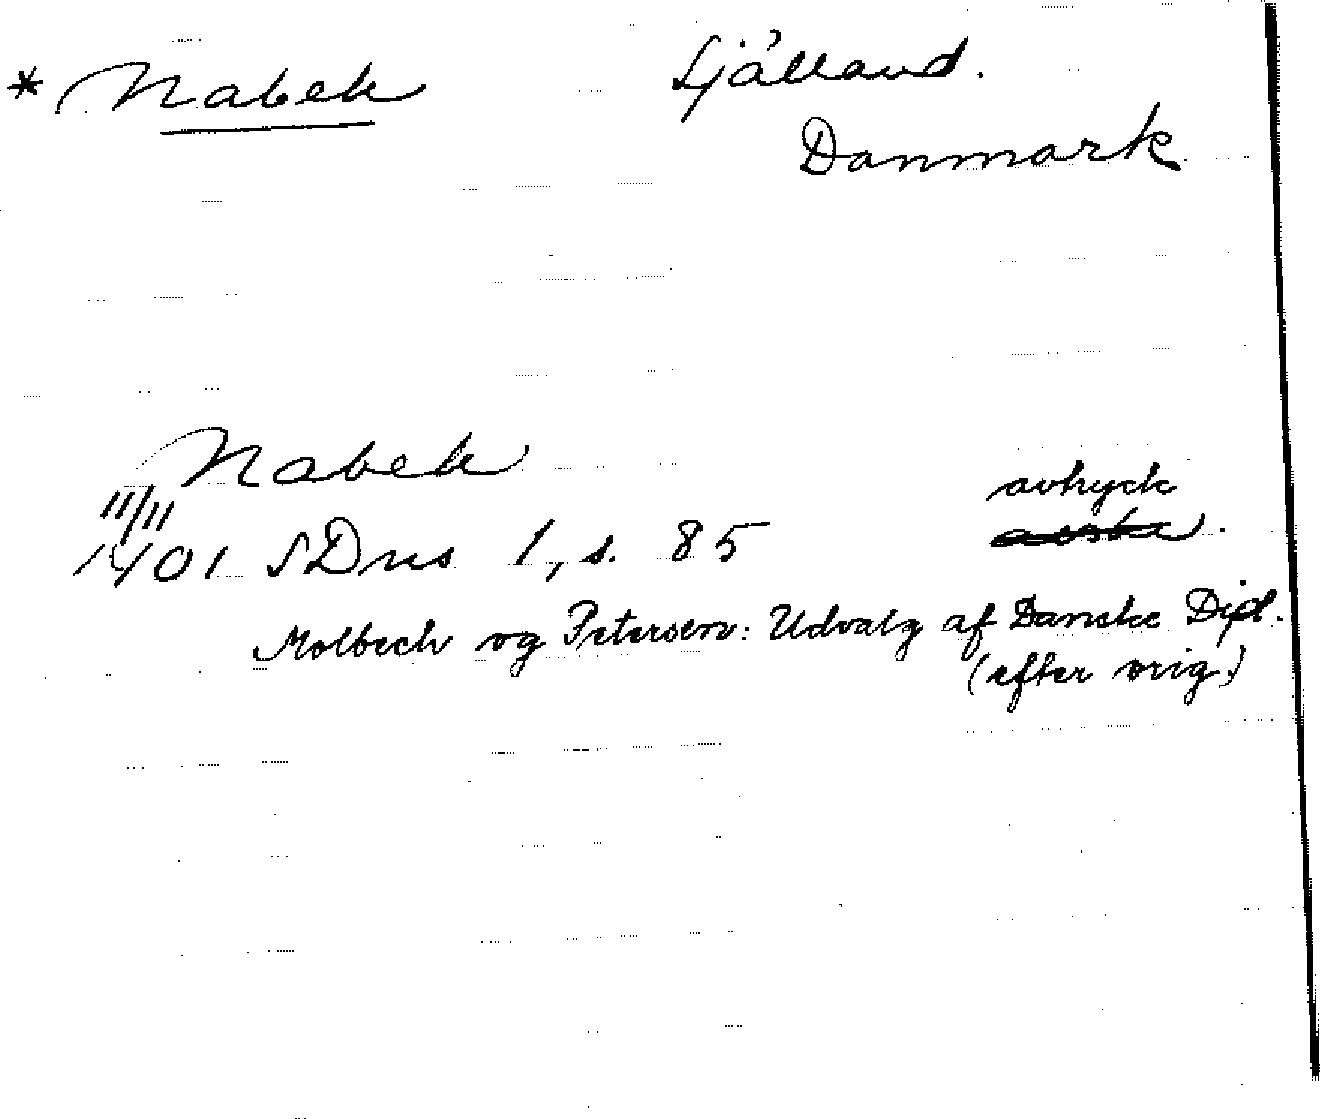 * Nabek Själland.
Danmark
Nabek
11/11 avtryck
1401 SDns 1, s. 85
Molbech og Petersen: Udvalg af Danske Dipl.
(efter orig.)